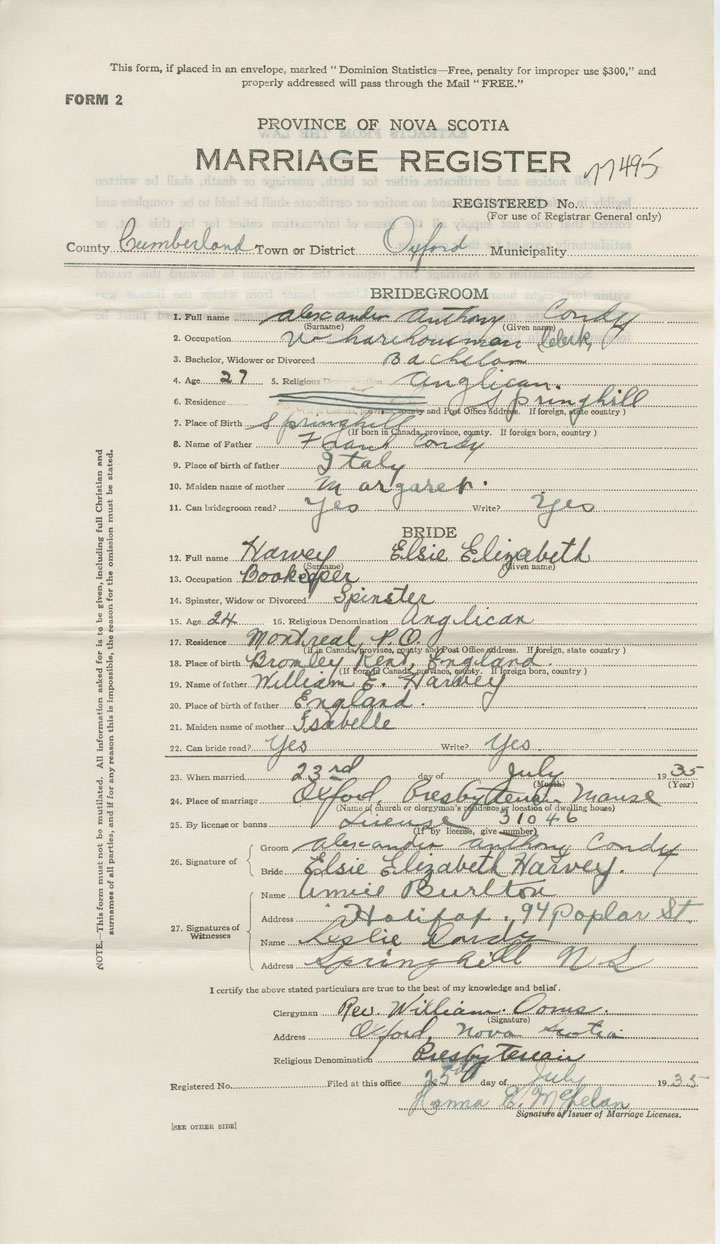 This form, if placed in an envelope, marked "Dominion Statistics—Free, penalty for improper use $300," and
properly addressed will pass through the Mail "FREE."
FORM 2
PROVINCE OF NOVA SCOTIA
MARRIAGE REGISTER
77495
REGISTERED No.
(For use of Registrar General only)
County Cumberland Town or District Oxford Municipality
BRIDEGROOM
1. Full name Alexander Anthony Condy
(Surname) (Given name)
2. Occupation Wharehousman Clerk,
3. Bachelor, Widower or Divorced Bachelor
4. Age 27 5. Religious Denomination Anglican.
6. Residence Springhill
(If in Canada, province, county and Post Office address. If foreign, state country)
7. Place of Birth Springhill
(If born in Canada, province, county. If foreign born, country)
8. Name of Father Frank Condy
9. Place of birth of father Italy
10. Maiden name of mother Margaret.
11. Can bridegroom read? Yes Write? Yes
BRIDE
12. Full name Harvey Elsie Elizabeth
(Surname) (Given name)
13. Occupation Bookeeper
14. Spinster, Widow or Divorced Spinster
15. Age 24 16. Religious Denomination Anglican
17. Residence Montreal, P.Q.
(If in Canada, province, county and Post Office address. If foreign, state country)
18. Place of birth Bromley Kent, England.
(If born in Canada, province, county. If foreign born, country)
19. Name of father William E. Harvey
20. Place of birth of father England.
21. Maiden name of mother Isabelle
22. Can bride read? Yes Write? Yes.
23. When married 23rd day of July 1935
(Month) (Year)
24. Place of marriage Oxford, Presbyterian Manse
(Name of church or clergyman's residence or location of dwelling house)
25. By license or banns License 31046
(If by license, give number)
26. Signature of Groom Alexander Anthony Condy
Bride Elsie Elizabeth Harvey.
27. Signatures of Witnesses
Name Burlton
Address Halifax, 94 Poplar St.
Name Leslie Condy
Address Springhill N S
I certify the above stated particulars are true to the best of my knowledge and belief.
Clergyman Rev. William Ooms.
(Signature)
Address Oxford, Nova Scotia
Religious Denomination Presbyterian
Registered No. Filed at this office 25th day of July 1935
Signature of Issuer of Marriage Licenses.
[SEE OTHER SIDE]
NOTE.—This form must not be mutilated. All information asked for is to be given, including full Christian and
surnames of all parties, and if for any reason this is impossible, the reason for the omission must be stated.